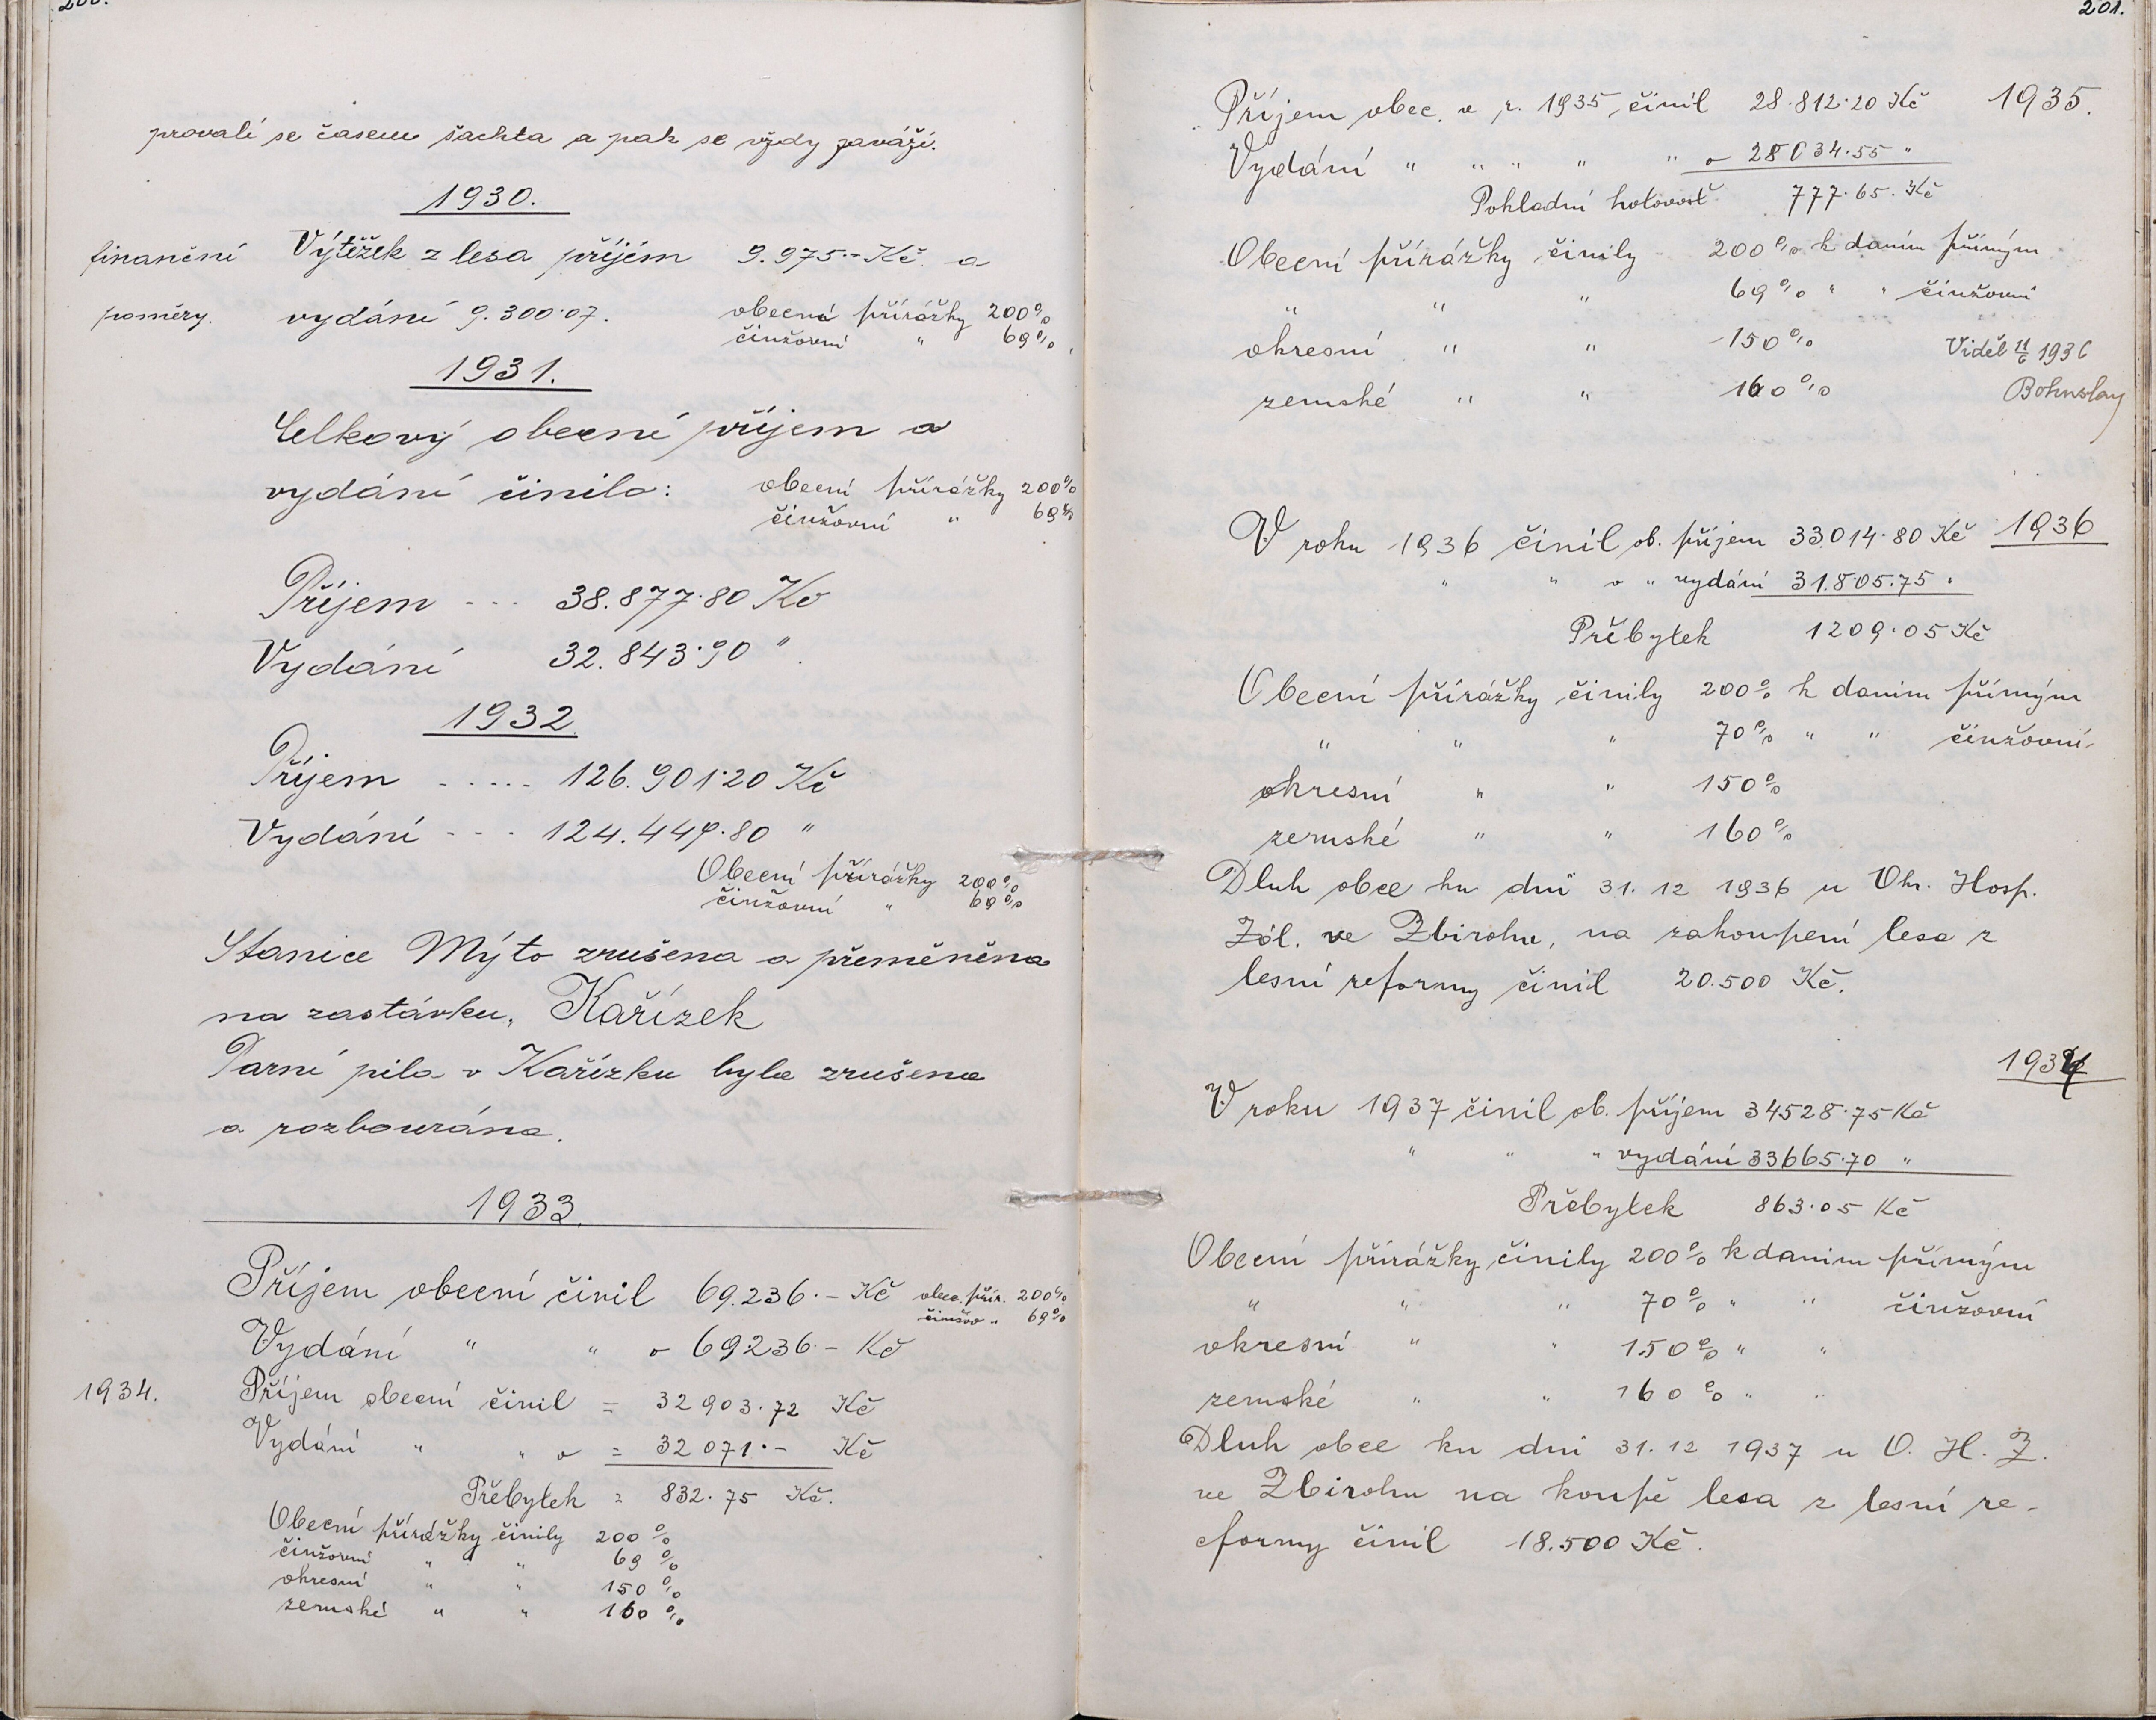 200.
provalí se časem šachta a pak se vždy zaváží.
1930.
finanční Výtěžek z lesa příjem 9.975·- Kč a
poměry. vydání 9.300·07. obecní přirážky 200%
činžovní " 69%
1931.
Celkový obecní příjem a
vydání činila: obecní přirážky 200%
činžovní " 69%
Příjem - - - 38.877·80 Kč
Vydání 32.843·90 "
1932.
Příjem . . . . . 126.901·20 Kč
Vydání - - - 124.447·80 "
Obecní přirážky 200%
činžovní " 69%
Stanice Mýto zrušena a přeměněna
na zastávku, Kařízek
Parní pila v Kařízku byla zrušena
a rozbourána.
1933.
Příjem obecní činil 69.236·- Kč obec. přir. 200%
činžov " 69%
Vydání " " o 69236·- Kč
1934. Příjem obecní činil = 32903·72 Kč
Vydání " " o = 32071·- Kč
Přebytek = 832·75 Kč.
Obecní přirážky činily 200%
činžovní " " 69%
okresní " " 150%
zemské " " 160%
201.
Příjem obec. v r. 1935 činil 28·812·20 Kč 1935.
Vydání " " " " " o 28034·55 "
Pokladní hotovost 777·65 Kč
Obecní přirážky činily 200% k daním přímým
" " " 69% " " činžovní
okresní " " 150% Viděl 11/6 1936
zemské " " 160%
V roku 1936 činil ob. příjem 33.014·80 Kč 1936
" " o " vydání 31.805·75 "
Přebytek 1209·05 Kč
Obecní přirážky činily 200% k daním přímým
" " " 70% " " činžovní
okresní " " 150%
zemské " " 160%
Dluh obce ku dni 31. 12 1936 u Okr. Hosp.
Zál. ve Zbirohu, na zakoupení lesa z
lesní reformy činil 20.500 Kč.
1937
V roku 1937 činil ob. příjem 34528·75 Kč
" " " vydání 33665·70 "
Přebytek 863·05 Kč
Obecní přirážky činily 200% k daním přímým
" " " 70% " " činžovní
okresní " " 150% " "
zemské " " 160% " "
Dluh obce ku dni 31. 12 1937 u O. H. Z.
ve Zbirohu na koupě lesa z lesní re-
formy činil 18.500 Kč.